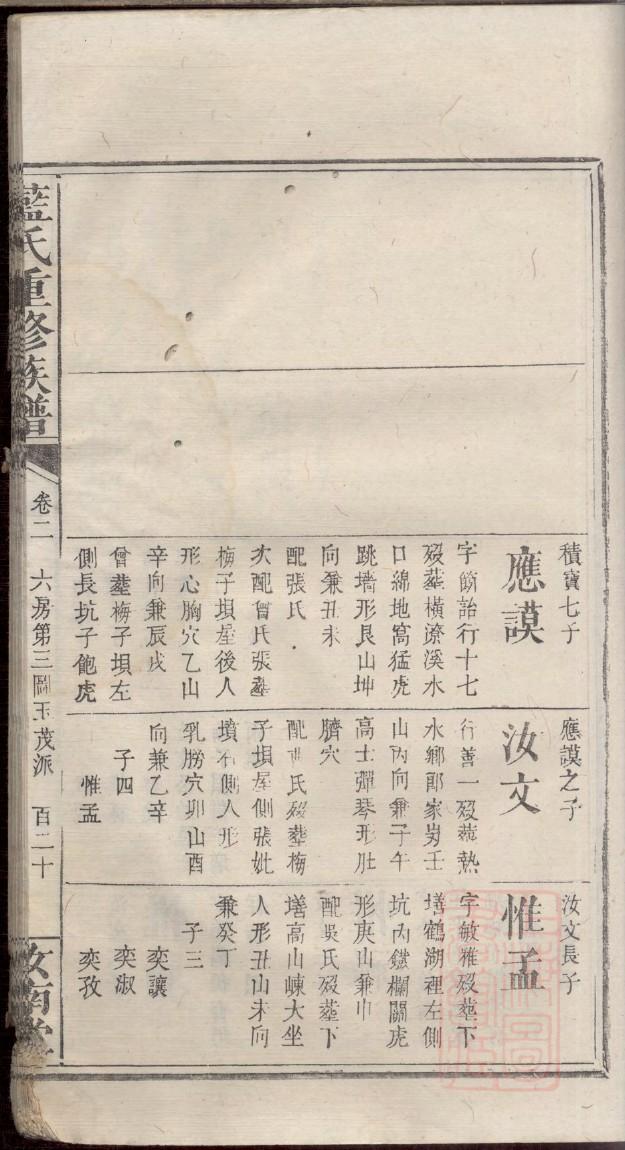 積寶七子
應謨
字飭詒行十七
歿葬橫潦溪水
口綿地窩猛虎
跳墻形艮山坤
向兼丑未
配張氏
次配曾氏張塟
梅子垻屋後人
形心胸穴乙山
辛向兼辰戌
曾塟梅子垻左
側長坑子飽虎
應謨之子
汝文
行善一歿葬熱
水鄉郎家岃壬
山丙向兼子午
高士彈琴形肚
臍穴
配 氏歿塟梅
子垻屋側張妣
墳右側人形
乳膀穴卯山酉
向兼乙辛
子四
惟孟
汝文長子
惟孟
字敏雅歿塟下
墡鶴湖裡左側
坑內鐵欄關虎
形庚山兼
配吳氏歿塟下
墡高山崠大坐
人形丑山未向
兼癸丁
子三
奕讓
奕淑
奕孜
藍氏重修族譜
卷二 六房第三圖玉茂派 百二十
汝南堂